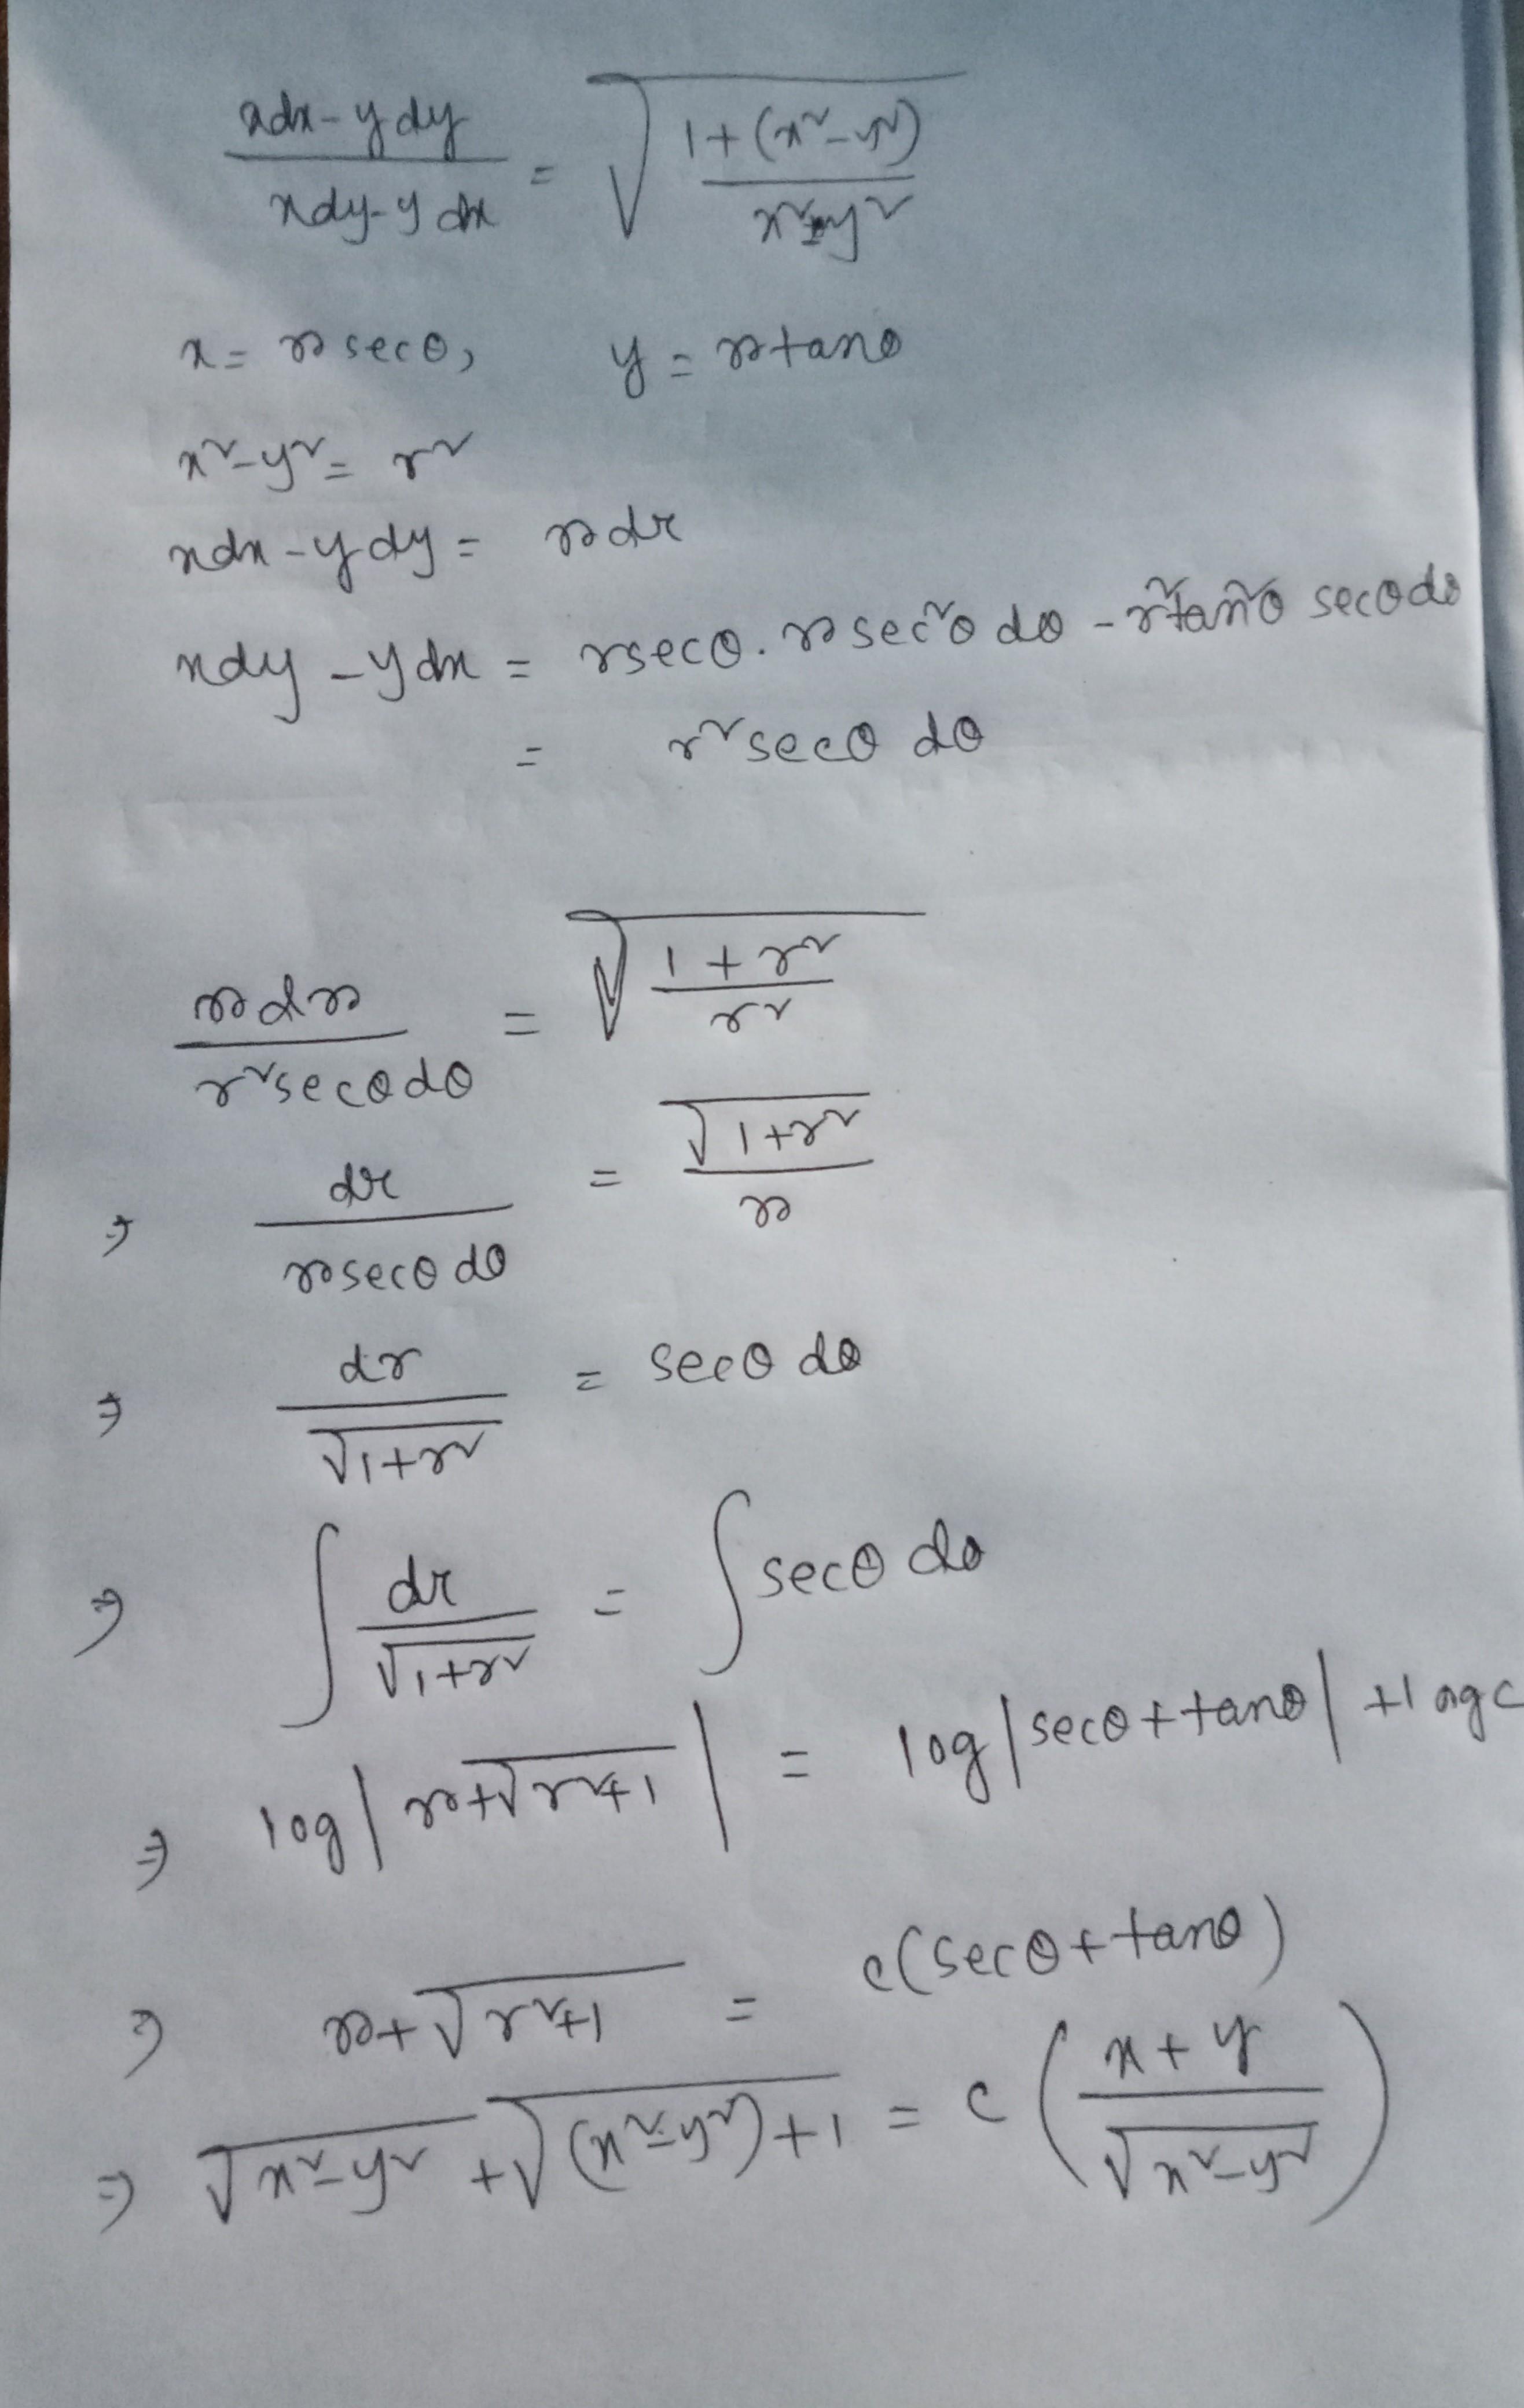 (xdx - ydy)/(xdy - ydx) = √((1+(x²-y²))/(x²-y²))
x = r secθ, y = r tanθ
x²-y² = r²
xdx - ydy = r dr
xdy - ydx = r secθ . r sec²θ dθ - r² tan²θ secθ dθ
= r² secθ dθ
(r dr)/(r² secθ dθ) = √((1+r²)/r²)
⇒ dr/(r secθ dθ) = √(1+r²)/r
⇒ dr/√(1+r²) = secθ dθ
⇒ ∫ dr/√(1+r²) = ∫ secθ dθ
⇒ log|r+√(r²+1)| = log|secθ+tanθ| + log c
⇒ r+√(r²+1) = c(secθ+tanθ)
⇒ √(x²-y²) + √((x²-y²)+1) = c((x+y)/√(x²-y²))